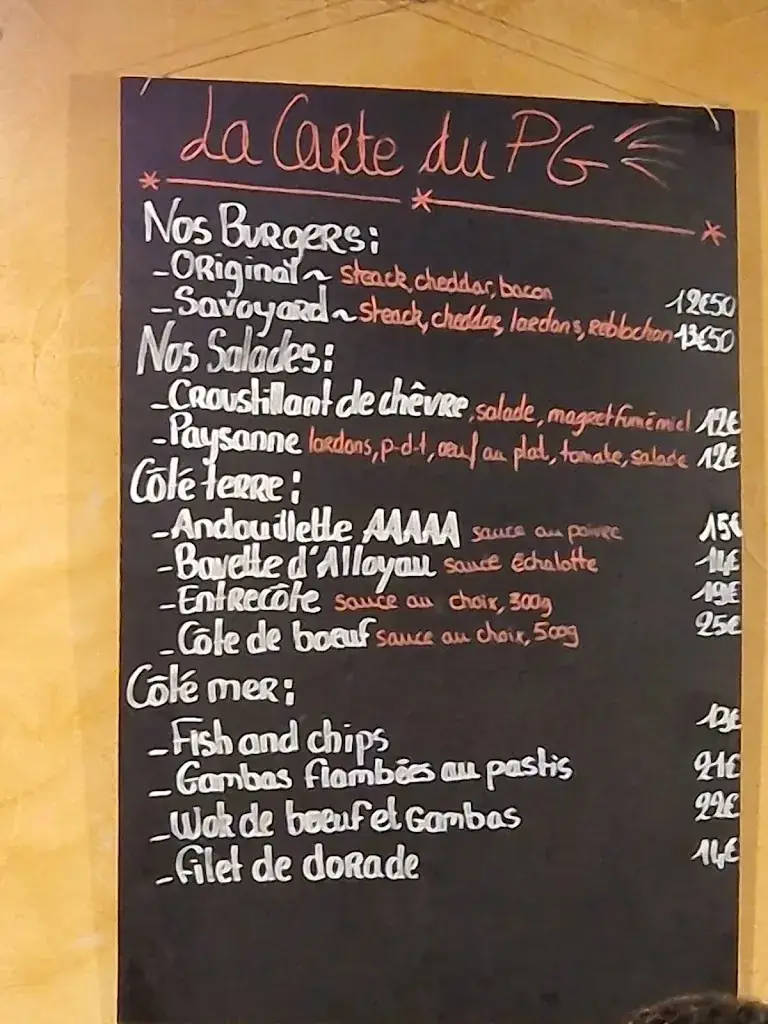 La Carte du PG
Nos Burgers:
- Original ~ steack, cheddar, bacon 12€50
- Savoyard ~ steack, cheddar, lardons, reblochon 13€50
Nos Salades:
- Croustillant de chêvre, salade, magret fumé miel 12€
- Paysanne lardons, p-d-t, oeuf au plat, tomate, salade 12€
Côté terre:
- Andouillette AAAAA sauce au poivre 15€
- Bavette d'Alloyau sauce échalotte 14€
- Entrecôte sauce au choix, 300g 19€
- Côte de boeuf sauce au choix, 500g 25€
Côté mer:
- Fish and chips
- Gambas flambées au pastis 21€
- Wok de boeuf et Gambas 22€
- Filet de dorade 14€